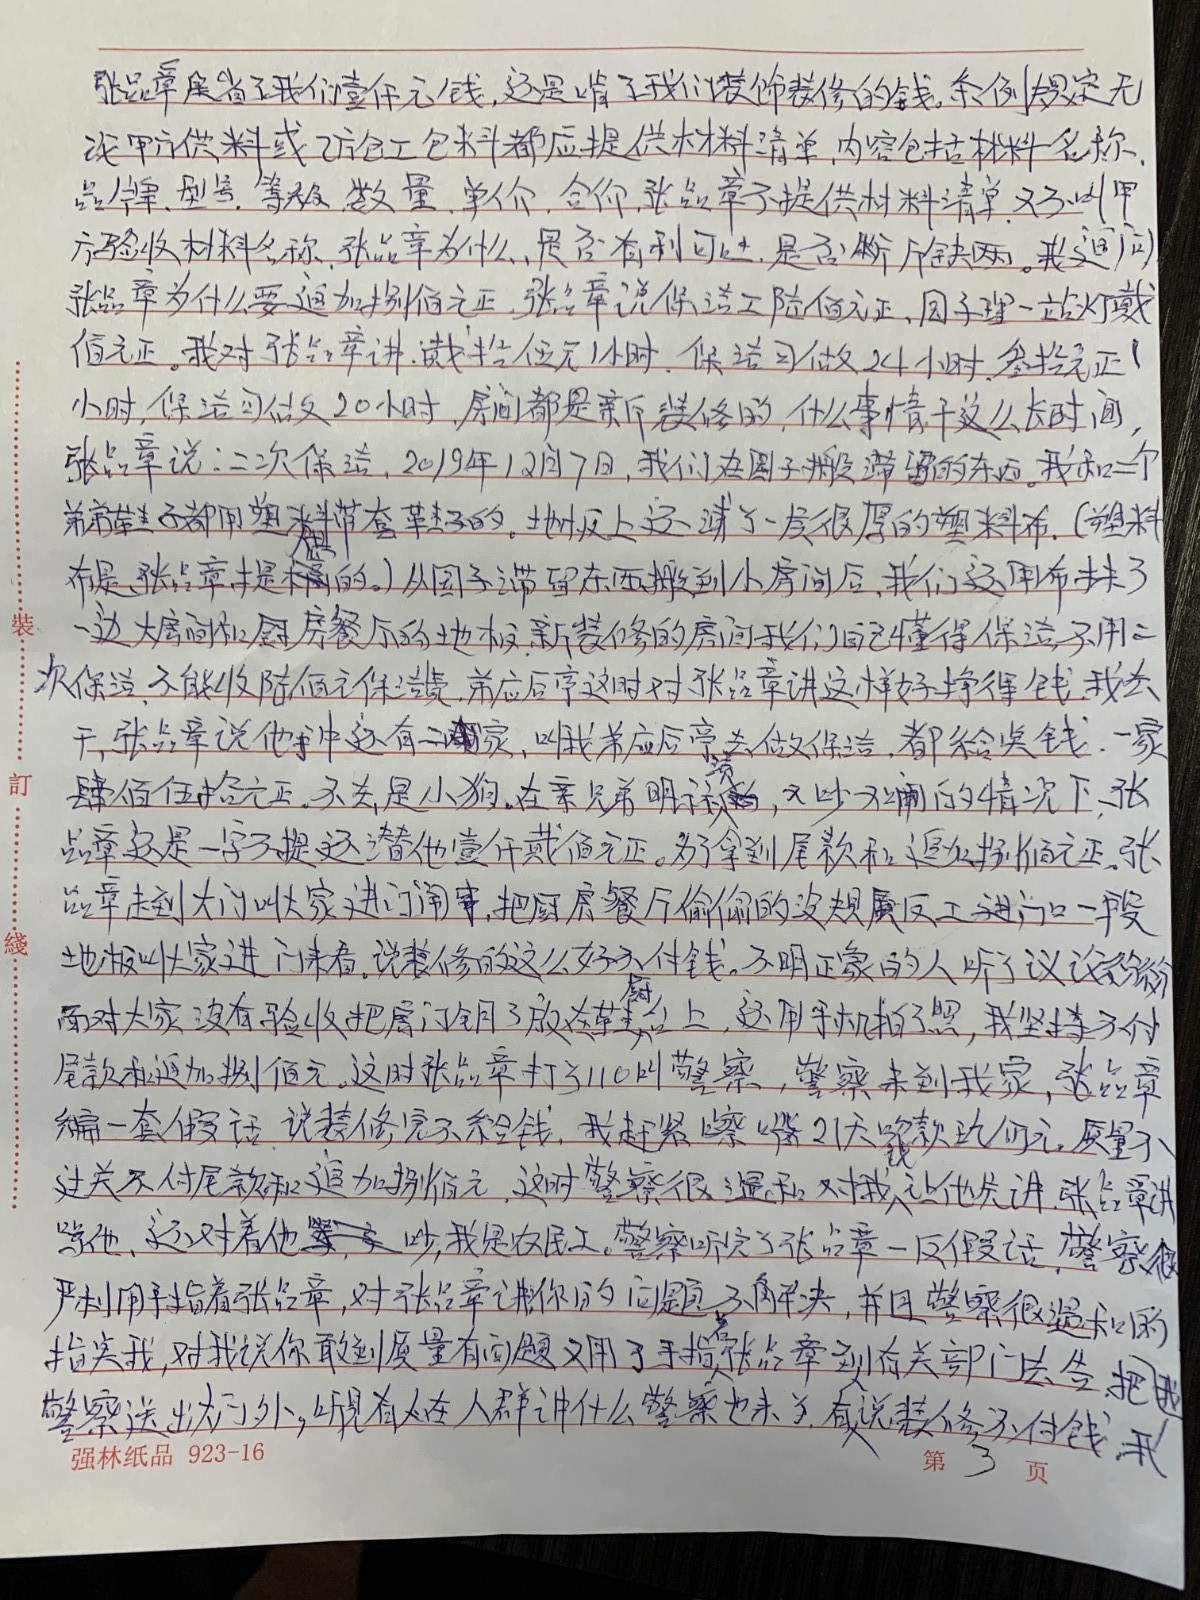 张品章是省了我们壹仟元钱，还是啃了我们装饰装修的钱。条例规定无
论甲方供料或乙方包工包料都应提供材料清单，内容包括材料名称、
品牌、型号、等级、数量、单价、合价，张品章不提供材料清单，又不叫甲
方验收材料名称，张品章为什么，是否有利可 ，是否 斤缺两。我 问
张品章为什么要追加捌佰元正，张品章说保洁工陆佰元正、园子理一 灯贰
佰元正。我对张品章讲，贰拾伍元1小时，保洁可做24小时，叁拾元正1
小时，保洁可做20小时，房间都是新装修的，什么事情干这么长时间，
张品章说：二次保洁，2019年12月7日，我们在园子搬滞留的东西。我和二个
弟弟鞋子都用塑料带套鞋子的。地板上还铺了一层很厚的塑料布，（塑料
布是张品章提 的。）从园子滞留东西搬到小房间后，我们还用布抹了
一边大房间和厨房餐厅的地板，新装修的房间我们自己懂得保洁，不用二
次保洁，不能收陆佰元保洁费，弟应后亭这时对张品章讲这样好挣得钱，我去
干，张品章说他手中还有 家，叫我弟应后亭去做保洁，都给 钱，一家
肆佰伍拾元正。不去是小狗。在亲兄弟明 ，不吵不闹的情况下，张
品章还是一字不提还潜他壹仟贰佰元正。为了拿到尾款和追加捌佰元正。张
品章走到大门叫大家进门闹事，把厨房餐厅偷偷的没规 返工进门口一段
地板叫大家进门来看。说装修的这么好不付钱。不明 的人听了议论纷纷
面对大家没有验收把房门钥 放在厨 台上，还用手机拍了照，我坚持不付
尾款和追加捌佰元。这时张品章打了110叫警察，警察来到我家，张品章
编一套假话，说装修完不给钱，我赶紧 21天 款 仟元。质量不
过关不付尾款和追加捌佰元，这时警察很温和对我说让他先讲，张品章讲
完他，还对着他 吵，我是农民工。警察听完了张品章一 假话，警察很
严利用手指着张品章，对张品章讲你的问题不解决，并且警察很温和的
指 我，对我说你 到质量有问题又用了手指 张品章到有关部门去告，把我
警察送出大门外， 有人在人群讲什么警察也来了，有 说装修不付钱，我
强林纸品 923-16
第 3 页
装
訂
綫